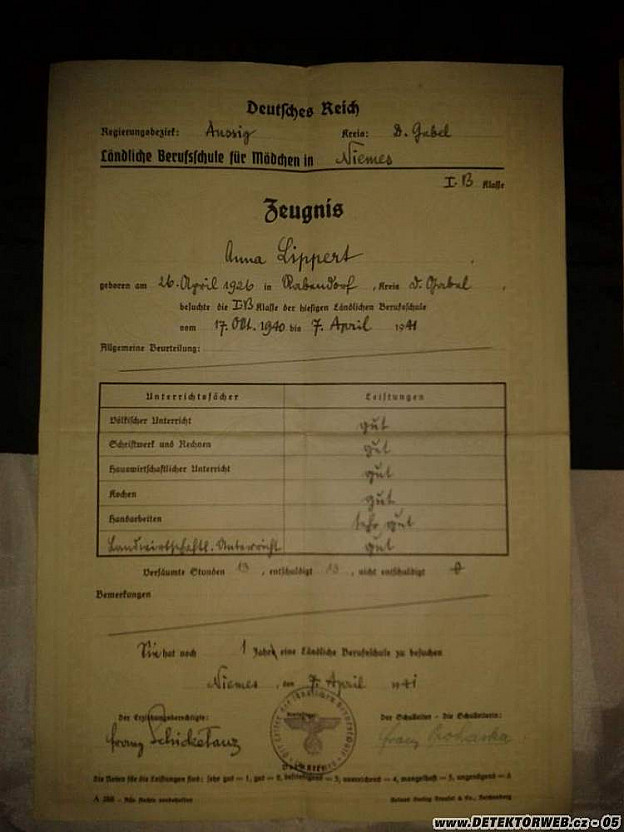 Deutsches Reich
Regierungsbezirk: Aussig Kreis: D. Gabel
Ländliche Berufsschule für Mädchen in Niemes
I. B Klasse
Zeugnis
Anna Lippert
geboren am 26. April 1926 in Rabendorf, Kreis D. Gabel,
besuchte die I.B Klasse der hiesigen Ländlichen Berufsschule
vom 17. Okt. 1940 bis 7. April 1941
Allgemeine Beurteilung:
Unterrichtsfächer Leistungen
Völkischer Unterricht gut
Schriftwerk und Rechnen gut
Hauswirtschaftlicher Unterricht gut
Kochen gut
Handarbeiten sehr gut
Landwirtschaftl. Unterricht gut
Versäumte Stunden 13, entschuldigt 13, nicht entschuldigt
Bemerkungen
Sie hat noch 1 Jahr eine Ländliche Berufsschule zu besuchen
Niemes, den 7. April 1941
Der Erziehungsberechtigte: Der Schulleiter - Die Schulleiterin:
Franz Schicketanz Franz Prohaska
Die Noten für die Leistungen sind: sehr gut = 1, gut = 2, befriedigend = 3, ausreichend = 4, mangelhaft = 5, ungenügend = 6
A 288 - Alle Rechte vorbehalten
www.DETEKTORWEB.cz - 05